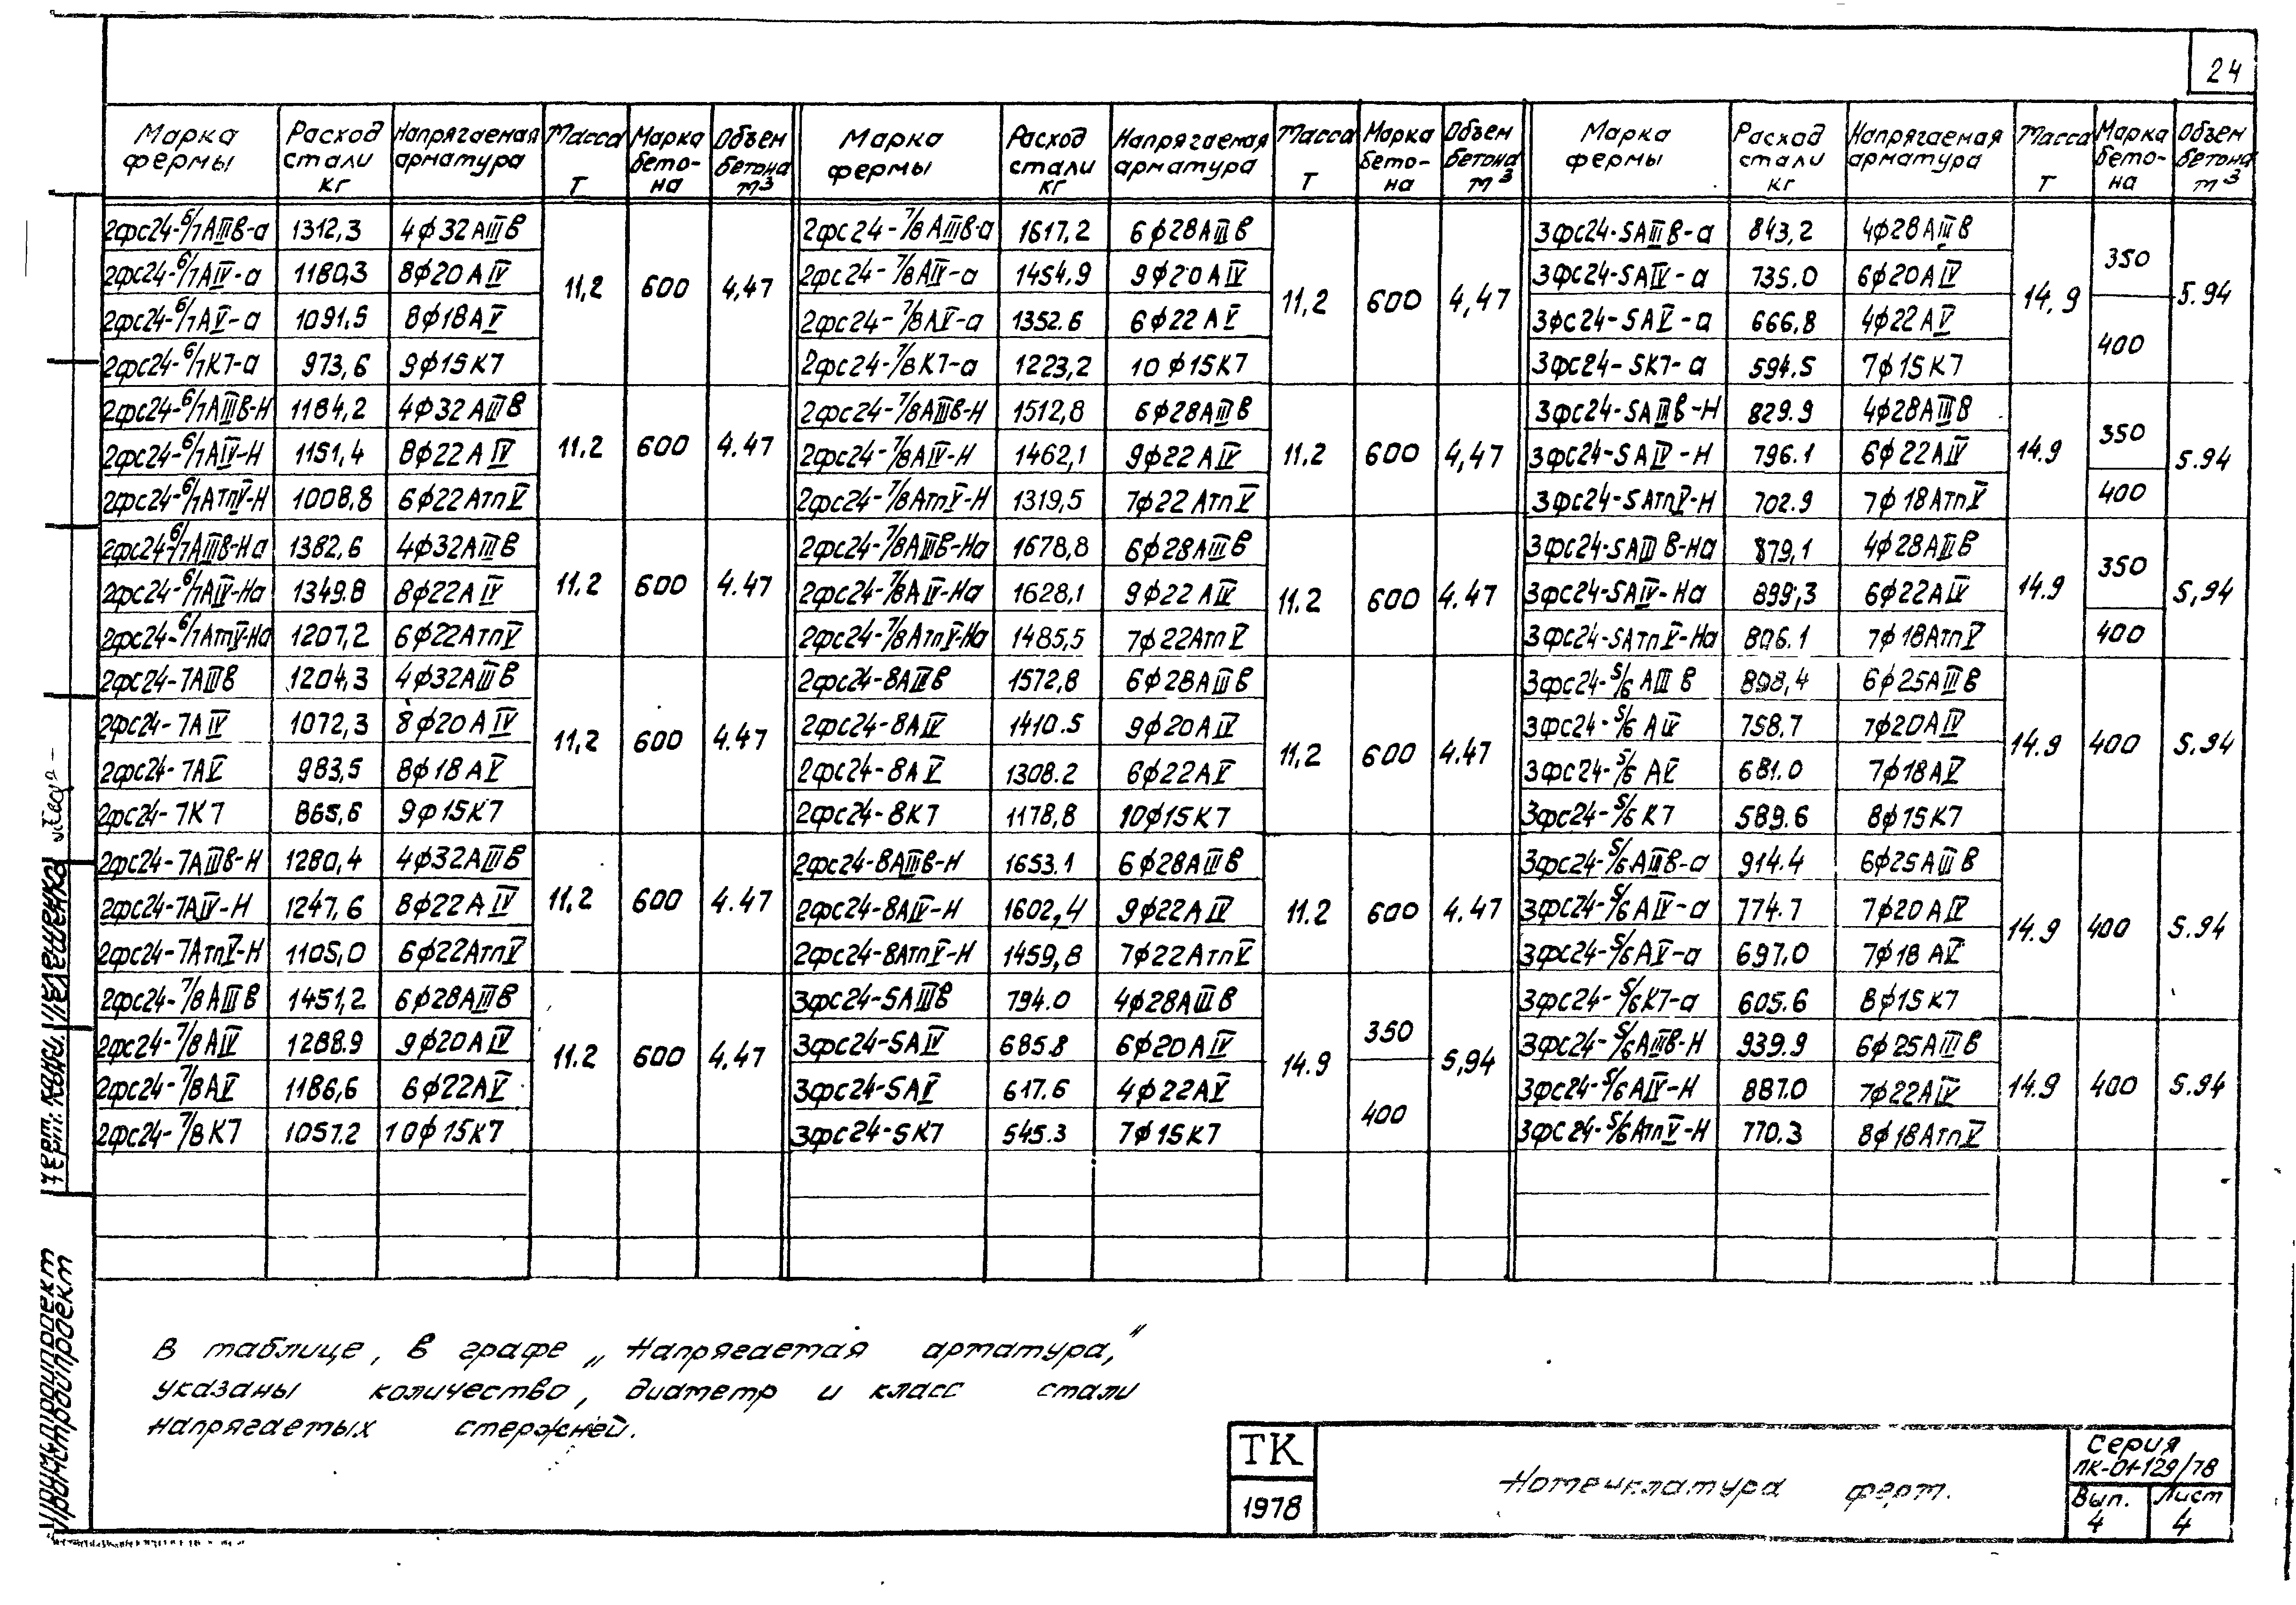 24
Марка фермы | Расход стали кг | Напрягаемая арматура | Масса т | Марка бето-на | Объем бетона м³ | Марка фермы | Расход стали кг | Напрягаемая арматура | Масса т | Марка бето-на | Объем бетона м³ | Марка фермы | Расход стали кг | Напрягаемая арматура | Масса т | Марка бето-на | Объем бетона м³
2фс24-6/7АIIIв-а | 1312,3 | 4ф32АIIIв | 11,2 | 600 | 4,47 | 2фс24-7/8АIIIв-а | 1617,2 | 6ф28АIIIв | 11,2 | 600 | 4,47 | 3фс24-5АIIIв-а | 843,2 | 4ф28АIIIв | 14,9 | 350 | 5.94
2фс24-6/7АIV-а | 1180,3 | 8ф20АIV | 2фс24-7/8АIV-а | 1454,9 | 9ф20АIV | 3фс24-5АIV-а | 735.0 | 6ф20АIV
2фс24-6/7АV-а | 1091,5 | 8ф18АV | 2фс24-7/8АV-а | 1352.6 | 6ф22АV | 3фс24-5АV-а | 666,8 | 4ф22АV | 400
2фс24-6/7К7-а | 973,6 | 9ф15К7 | 2фс24-7/8К7-а | 1223,2 | 10ф15К7 | 3фс24-5К7-а | 594.5 | 7ф15К7
2фс24-6/7АIIIв-Н | 1184,2 | 4ф32АIIIв | 11.2 | 600 | 4.47 | 2фс24-7/8АIIIв-Н | 1512,8 | 6ф28АIIIв | 11.2 | 600 | 4,47 | 3фс24-5АIIIв-Н | 829.9 | 4ф28АIIIв | 14.9 | 350 | 5.94
2фс24-6/7АIV-Н | 1151,4 | 8ф22АIV | 2фс24-7/8АIV-Н | 1462,1 | 9ф22АIV | 3фс24-5АIV-Н | 796.1 | 6ф22АIV
2фс24-6/7АтпV-Н | 1008,8 | 6ф22АтпV | 2фс24-7/8АтпV-Н | 1319,5 | 7ф22АтпV | 3фс24-5АтпV-Н | 702.9 | 7ф18АтпV | 400
2фс24-6/7АIIIв-На | 1382,6 | 4ф32АIIIв | 11.2 | 600 | 4.47 | 2фс24-7/8АIIIв-На | 1678,8 | 6ф28АIIIв | 11.2 | 600 | 4.47 | 3фс24-5АIIIв-На | 879,1 | 4ф28АIIIв | 14.9 | 350 | 5,94
2фс24-6/7АIV-На | 1349.8 | 8ф22АIV | 2фс24-7/8АIV-На | 1628,1 | 9ф22АIV | 3фс24-5АIV-На | 899,3 | 6ф22АIV
2фс24-6/7АтпV-На | 1207,2 | 6ф22АтпV | 2фс24-7/8АтпV-На | 1485,5 | 7ф22АтпV | 3фс24-5АтпV-На | 806.1 | 7ф18АтпV | 400
2фс24-7АIIIв | 1204,3 | 4ф32АIIIв | 11,2 | 600 | 4.47 | 2фс24-8АIIIв | 1572,8 | 6ф28АIIIв | 11,2 | 600 | 4.47 | 3фс24-5/6АIIIв | 898,4 | 6ф25АIIIв | 14.9 | 400 | 5.94
2фс24-7АIV | 1072,3 | 8ф20АIV | 2фс24-8АIV | 1410.5 | 9ф20АIV | 3фс24-5/6АIV | 758.7 | 7ф20АIV
2фс24-7АV | 983,5 | 8ф18АV | 2фс24-8АV | 1308.2 | 6ф22АV | 3фс24-5/6АV | 681.0 | 7ф18АV
2фс24-7К7 | 865,6 | 9ф15К7 | 2фс24-8К7 | 1178,8 | 10ф15К7 | 3фс24-5/6К7 | 589.6 | 8ф15К7
2фс24-7АIIIв-Н | 1280,4 | 4ф32АIIIв | 11,2 | 600 | 4.47 | 2фс24-8АIIIв-Н | 1653.1 | 6ф28АIIIв | 11.2 | 600 | 4.47 | 3фс24-5/6АIIIв-а | 914.4 | 6ф25АIIIв | 14.9 | 400 | 5.94
2фс24-7АIV-Н | 1247,6 | 8ф22АIV | 2фс24-8АIV-Н | 1602,4 | 9ф22АIV | 3фс24-5/6АIV-а | 774.7 | 7ф20АIV
2фс24-7АтпV-Н | 1105,0 | 6ф22АтпV | 2фс24-8АтпV-Н | 1459,8 | 7ф22АтпV | 3фс24-5/6АV-а | 697.0 | 7ф18АV
2фс24-7/8АIIIв | 1451,2 | 6ф28АIIIв | 11.2 | 600 | 4,47 | 3фс24-5АIIIв | 794.0 | 4ф28АIIIв | 14.9 | 350 | 5,94 | 3фс24-5/6К7-а | 605.6 | 8ф15К7
2фс24-7/8АIV | 1288.9 | 9ф20АIV | 3фс24-5АIV | 685.8 | 6ф20АIV | 3фс24-5/6АIIIв-Н | 939.9 | 6ф25АIIIв | 14.9 | 400 | 5.94
2фс24-7/8АV | 1186,6 | 6ф22АV | 3фс24-5АV | 617.6 | 4ф22АV | 400 | 3фс24-5/6АIV-Н | 887.0 | 7ф22АIV
2фс24-7/8К7 | 1057.2 | 10ф15К7 | 3фс24-5К7 | 545.3 | 7ф15К7 | 3фс24-5/6АтпV-Н | 770.3 | 8ф18АтпV
В таблице, в графе „Напрягаемая арматура,"
указаны количество, диаметр и класс стали
напрягаемых стержней.
ТК
1978
Номенклатура ферм.
Серия
ПК-01-129/78
Вып. Лист
4 4